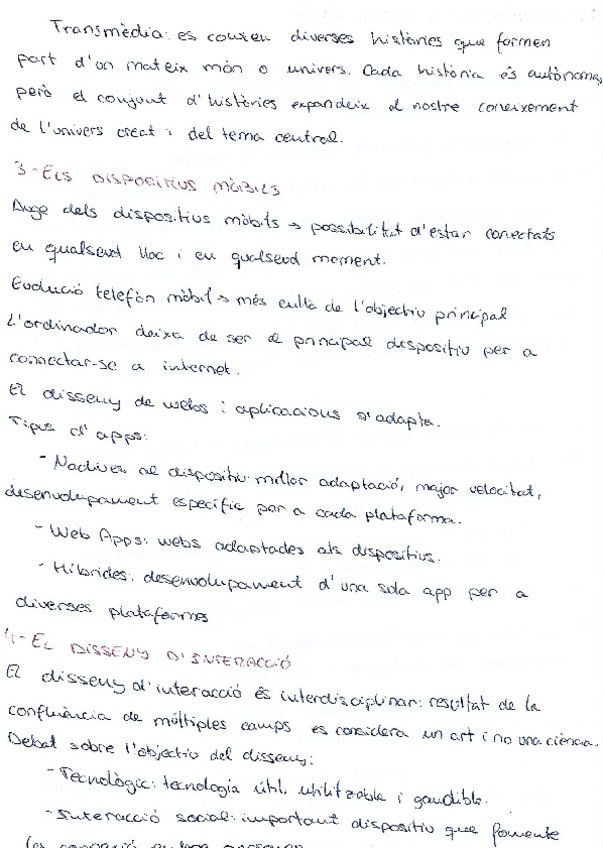 Transmèdia: es couen diverses històries que formen
part d'un mateix món o univers. Cada història és autònoma,
però el conjunt d'històries expandeix el nostre coneixement
de l'univers creat i del tema central.
3-ELS DISPOSITIUS MÒBILS
Auge dels dispositius mòbils → possibilitat d'estar conectats
en qualsevol lloc i en qualsevol moment.
Evolució telefòn mòbil → més enllà de l'objectiu principal
L'ordinador deixa de ser el principal dispositiu per a
connectar-se a internet.
El disseny de webs i aplicacions s'adapta.
Tipus d'apps:
- Nadives al dispositiu: millor adaptació, major velocitat,
desenvolupament específic per a cada plataforma.
- Web Apps: webs adaptades als dispositius.
- Híbrides: desenvolupament d'una sola app per a
diverses plataformes
4-EL DISSENY D'INTERACCIÓ
El disseny d'interacció és interdisciplinar: resultat de la
confluència de múltiples camps es considera un art i no una ciència.
Debat sobre l'objectiu del disseny:
- Tecnològic: tecnología útil, utilitzable i gaudible.
- Interacció social: important dispositiu que fomente